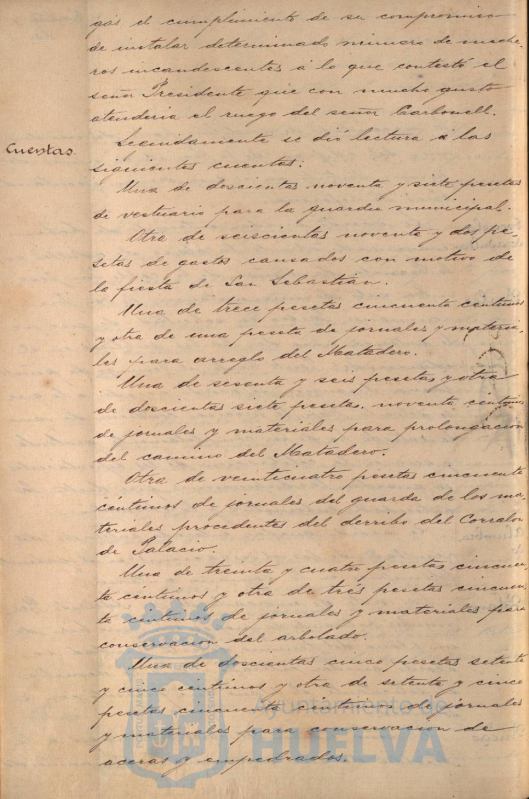 gas el cumplimiento de su compromiso
de instalar determinado número de meche-
ros incandescentes á lo que contestó el
señor Presidente que con mucho gusto
atenderia el ruego del señor Carbonell.
Cuentas.
Seguidamente se dió lectura á las
siguientes cuentas:
Una de doscientas noventa y siete pesetas
de vestuario para la guardia municipal.
Otra de seiscientas noventa y dos pe-
setas de gastos causados con motivo de
la fiesta de San Sebastian.
Una de trece pesetas cincuenta centimos
y otra de una peseta de jornales y materia-
les para arreglo del Matadero.
Una de sesenta y seis pesetas y otra
de doscientas siete pesetas noventa centimos
de jornales y materiales para prolongacion
del camino del Matadero.
Otra de veinticuatro pesetas cincuenta
céntimos de jornales del guarda de los ma-
teriales procedentes del derribo del Corralon
de Palacio.
Una de treinta y cuatro pesetas cincuen-
ta céntimos y otra de tres pesetas cincuen-
ta centimos de jornales y materiales para
conservacion del arbolado.
Una de doscientas cinco pesetas setenta
y cinco centimos y otra de setenta y cinco
pesetas cincuenta centimos de jornales
y materiales para conservacion de
aceras y empedrados.
Ayuntamiento de
HUELVA